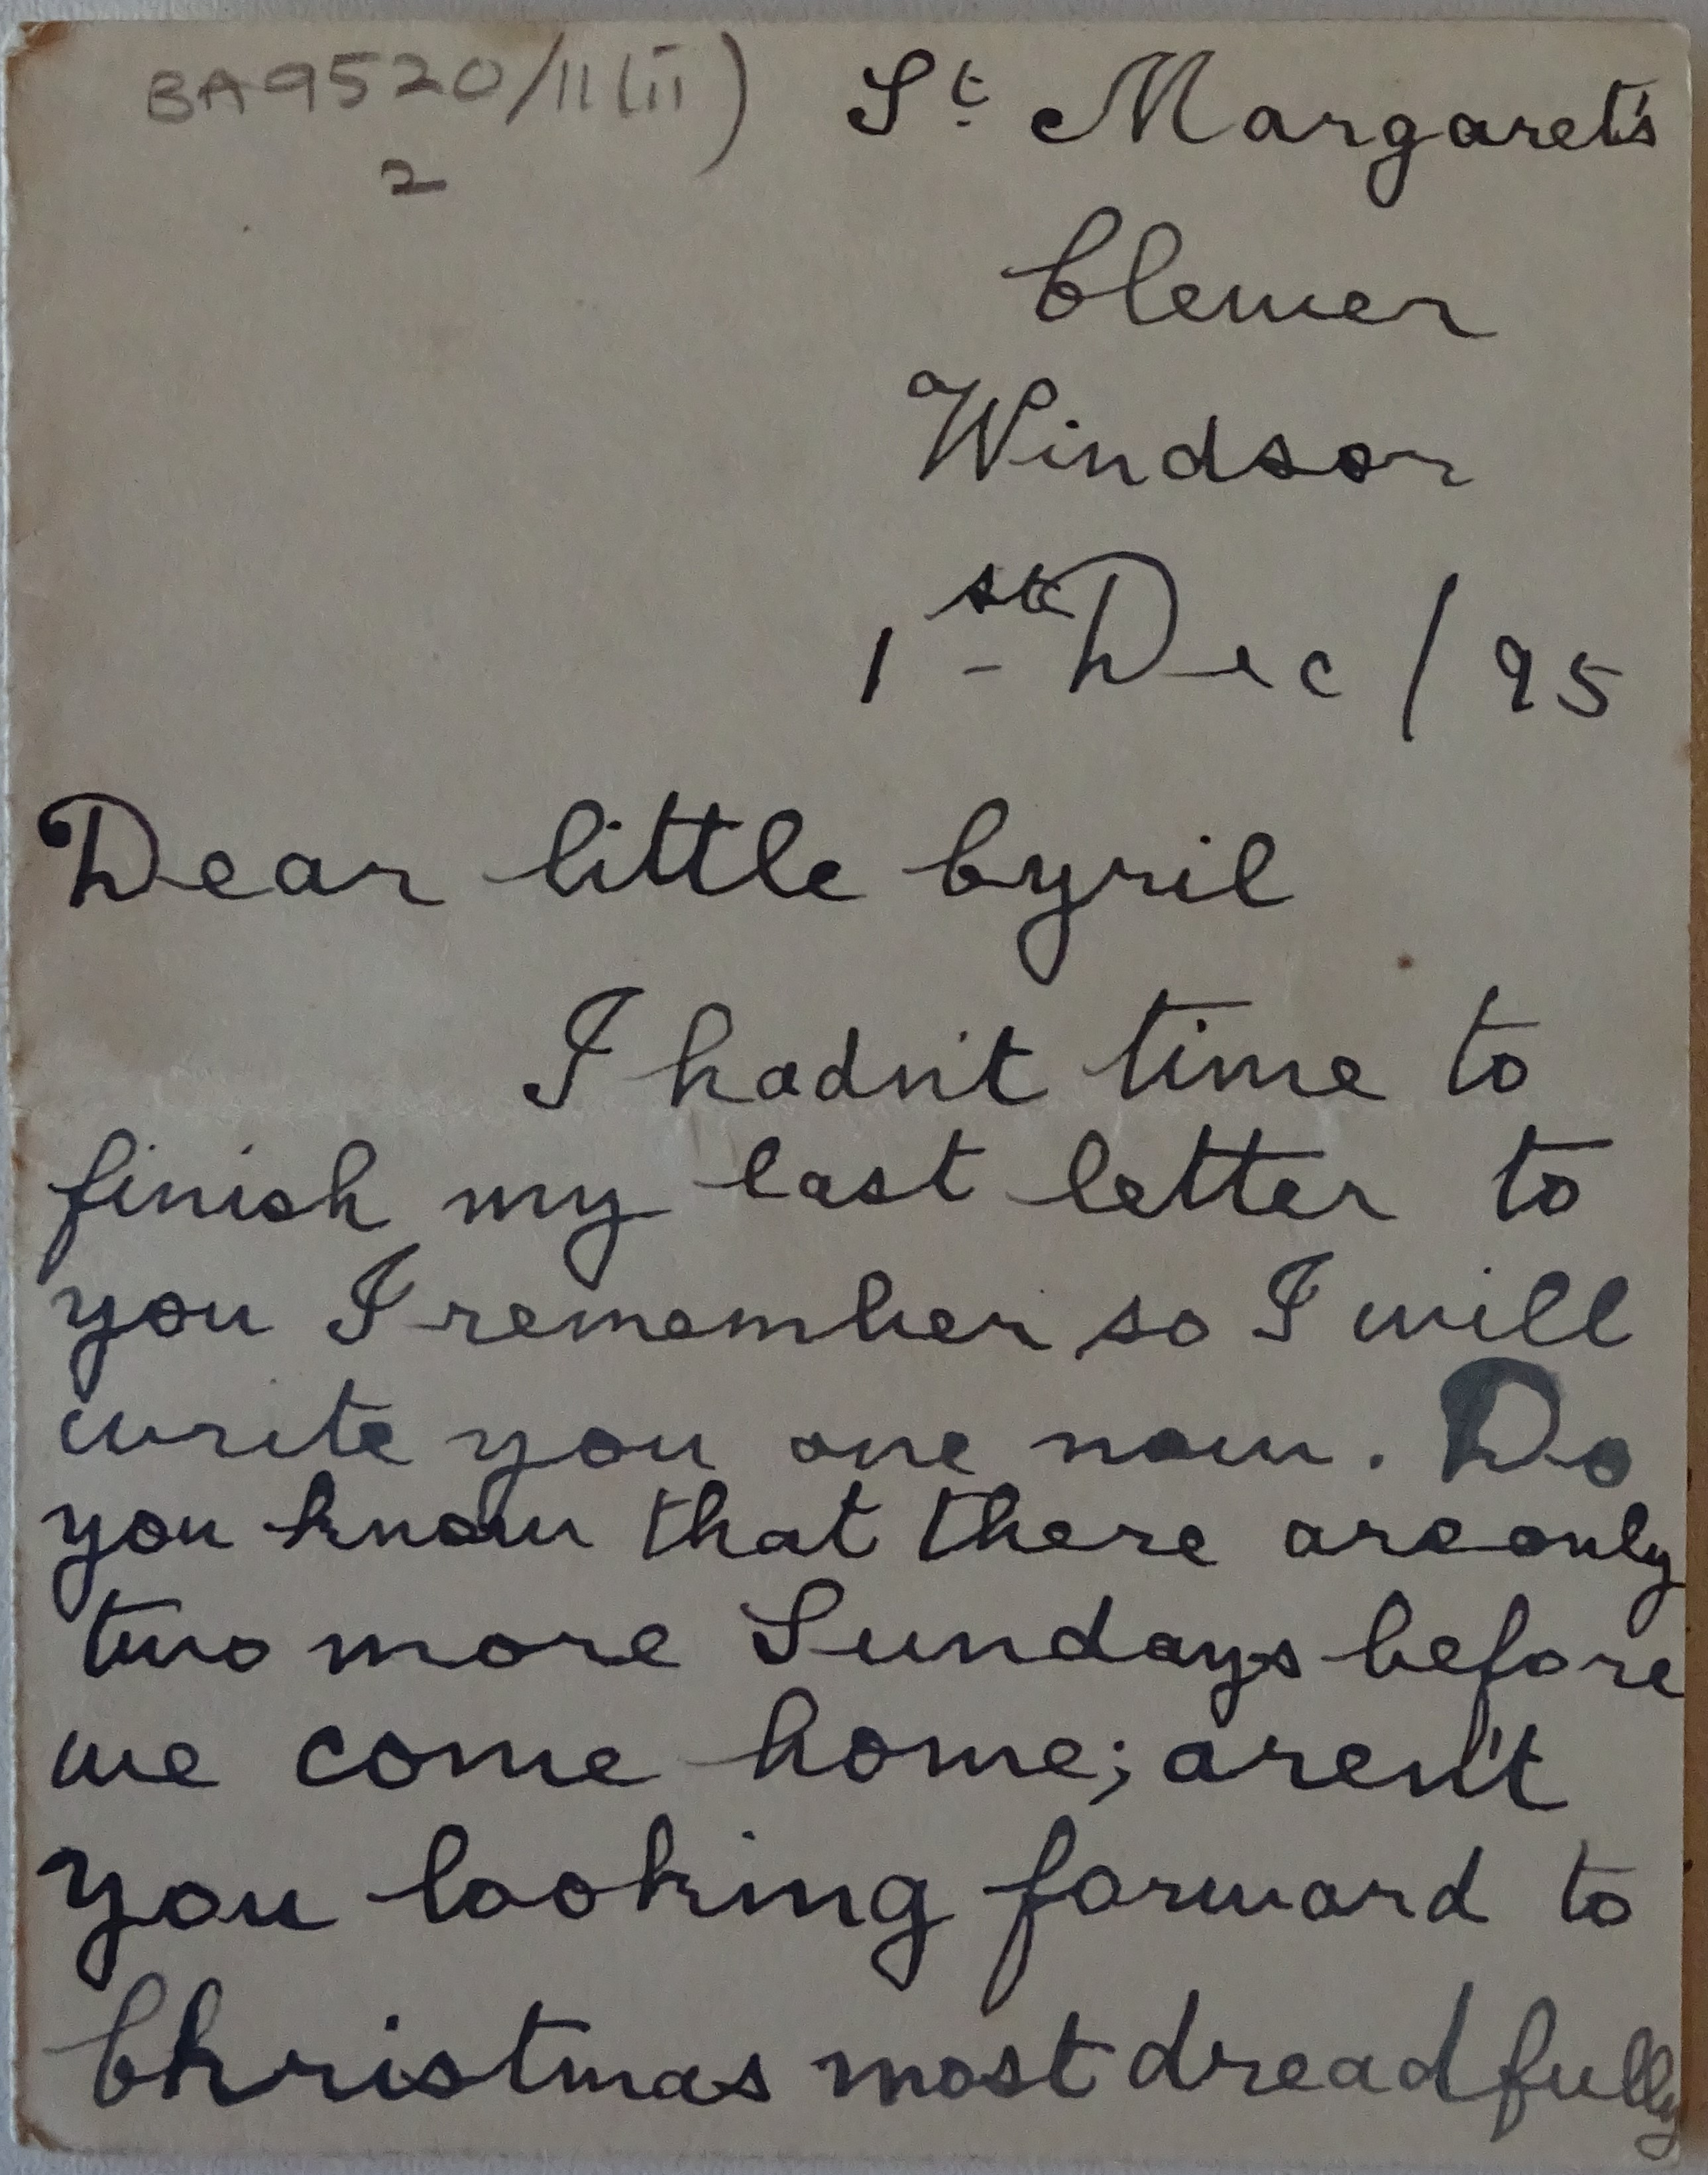 BA9520/11(ii)
2
St. Margaret's
Clewer
Windsor
1st Dec / 95
Dear little Cyril
I hadn't time to
finish my last letter to
you I remember so I will
write you one now. Do
you know that there are only
two more Sundays before
we come home; aren't
you looking forward to
Christmas most dreadfully